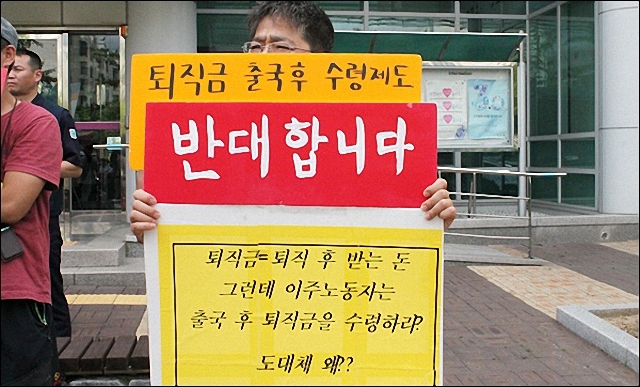 퇴직금 출국후 수령제도
반대합니다
퇴직금=퇴직 후 받는 돈
그런데 이주노동자는
출국 후 퇴직금을 수령하라?
도대체 왜??
Information